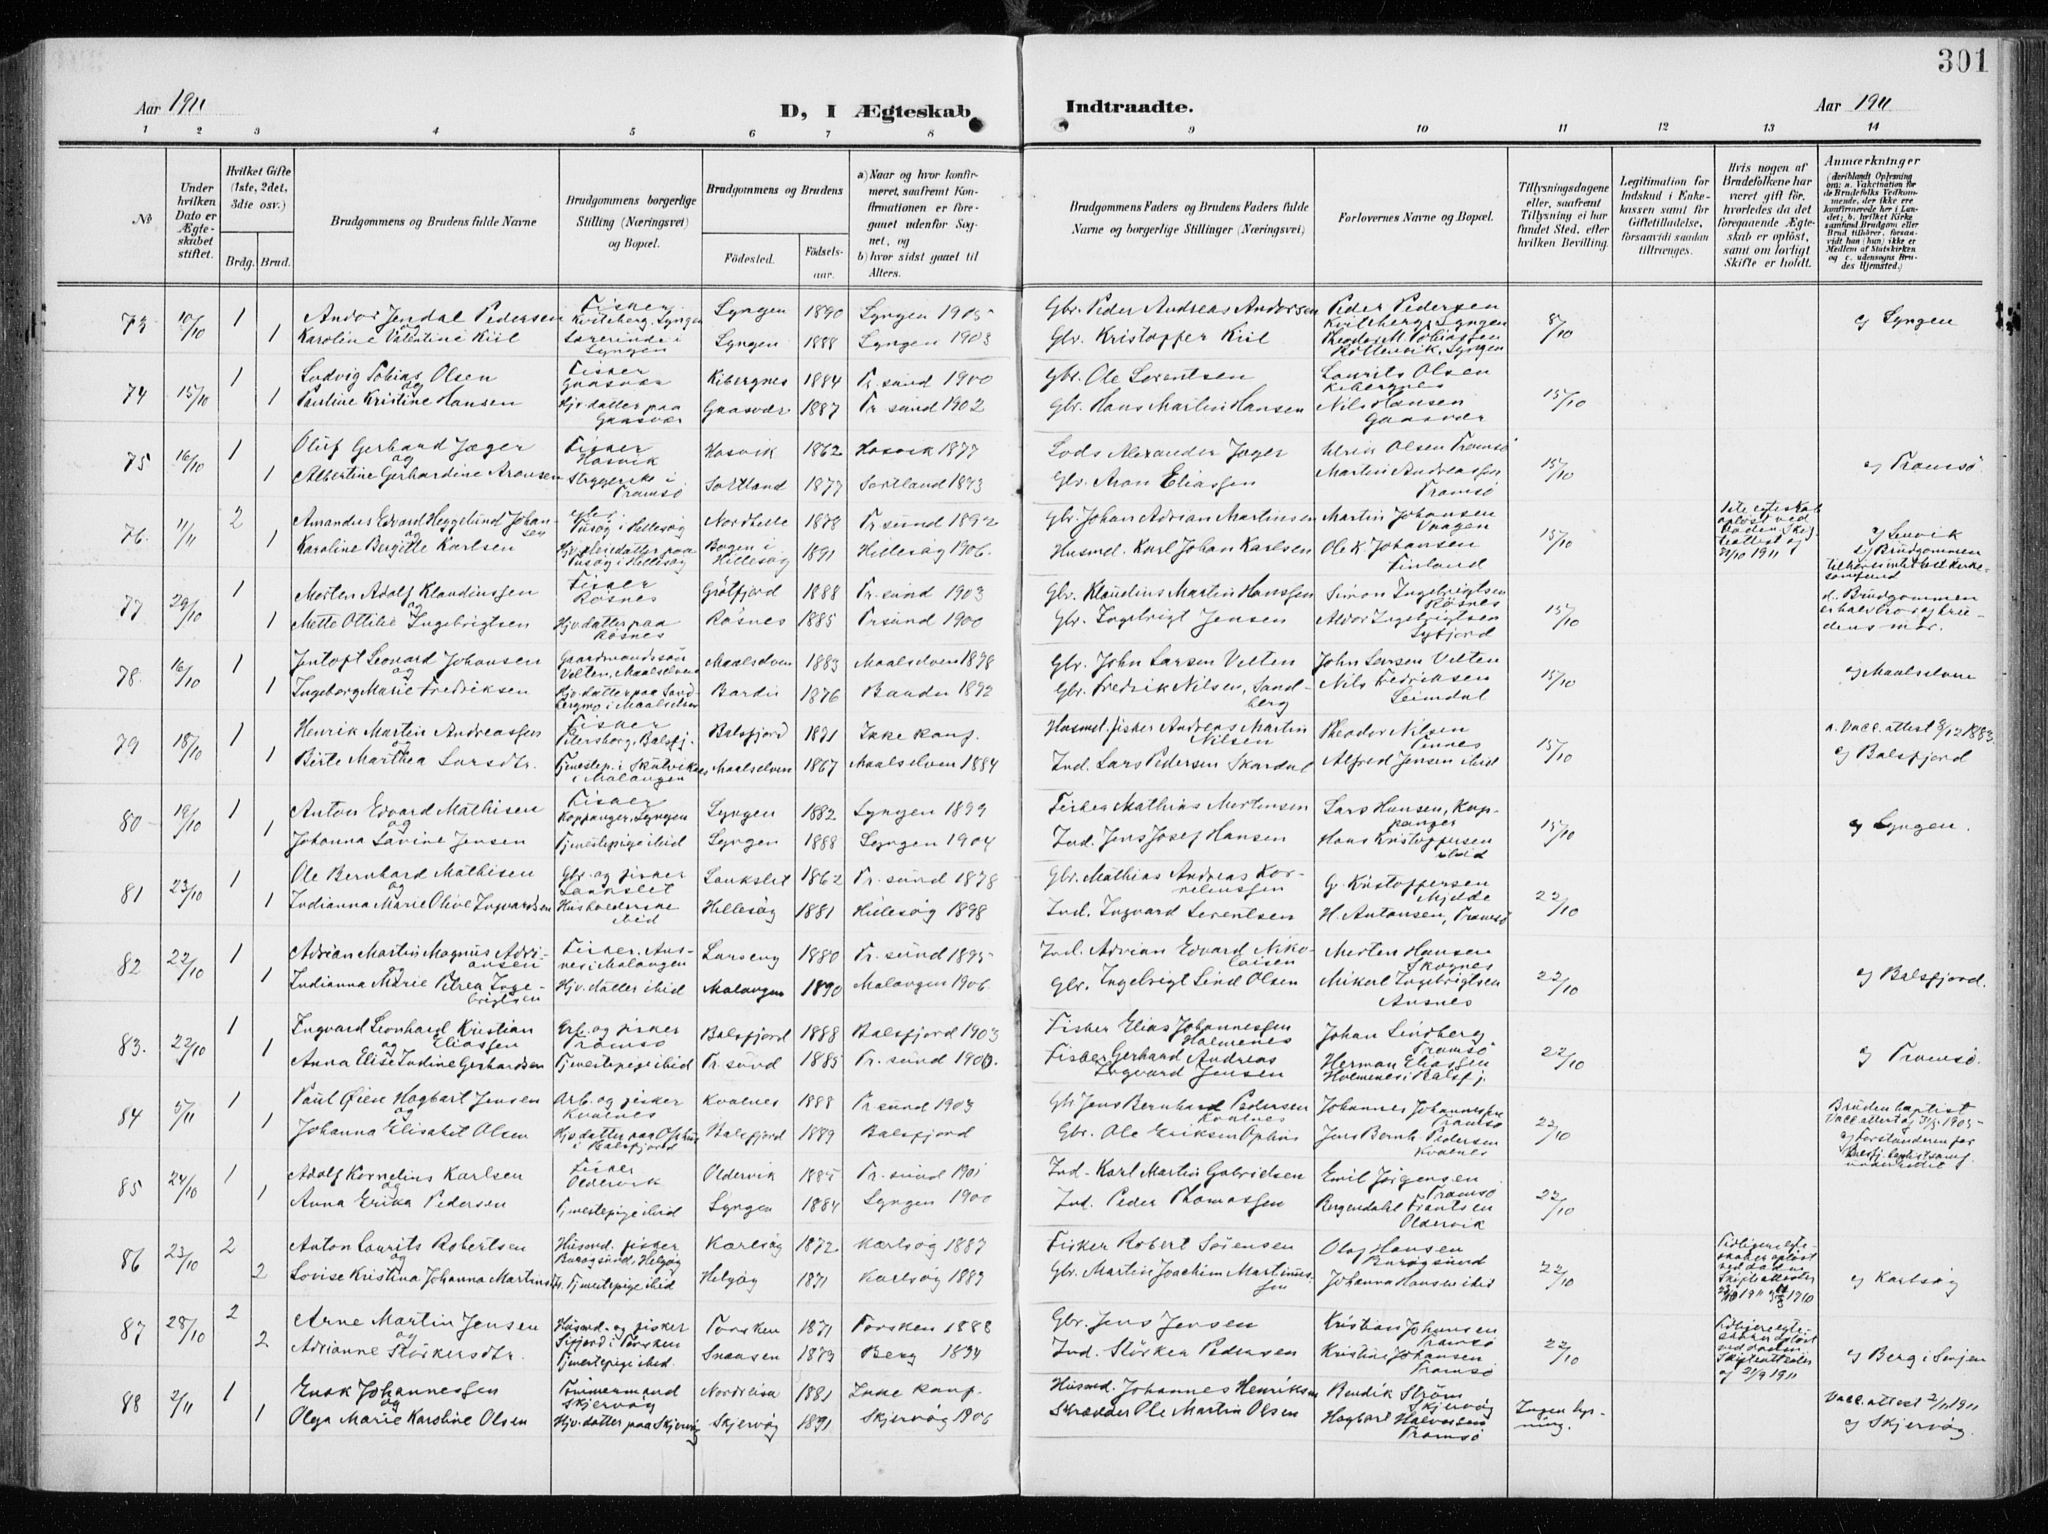 301
Aar 1911
D, I Ægteskab Indtraadte.
Aar 1911
1 2 3 4 5 6 7 8 9 10 11 12 13 14
No
Under hvilken Dato er Ægteskabet stiftet.
Hvilket Gifte (1ste, 2det, 3die osv.)
Brdg. Brud.
Brudgommens og Brudens fulde Navne
Brudgommens borgerlige Stilling (Næringsvei) og Bopæl.
Brudgommens og Brudens
Fødested.
Fødselsaar.
a) Naar og hvor konfirmeret, saafremt Konfirmationen er foregaaet udenfor Sognet, og b) hvor sidst gaaet til Alters.
Brudgommens Faders og Brudens Faders fulde Navne og borgerlige Stillinger (Næringsvei)
Forlovernes Navne og Bopæl.
Tillysningsdagene eller, saafremt Tillysning ei har fundet Sted, efter hvilken Bevilling.
Legitimation for Indskud i Enkekassen samt for Giftetilladelse, forsaavidt saadan tiltrænges.
Hvis nogen af Brudefolkene har været gift før, hvorledes da det foregaaende Ægteskab er opløst, samt om lovligt Skifte er holdt.
Anmærkninger (deriblandt Oplysning om: a. Vakcination for de Brudefolks Vedkommende, der ikke ere konfirmerede her i Landet; b. hvilket Kirkesamfund Brudgom eller Brud tilhører, forsaavidt han (hun) ikke er Medlem af Statskirken og c. udensogns Brudes Hjemsted.)
73 10/10 1 Andor Jendal Pedersen Fisker Kviteberg, Lyngen Lyngen 1890 Lyngen 1905 Gbr. Peder Andreas Andersen Peder Pedersen Kviteberg, Lyngen 8/10 c) Lyngen
og
1 Karoline Valentine Kiil Lærerinde i Lyngen Lyngen 1888 Lyngen 1903 Gbr. Kristoffer Kiil Theodor M. Tobiassen Rottenvik, Lyngen
74 15/10 1 Ludvig Tobias Olsen Fisker Gaasvær Kibergnes 1884 Tr.sund 1900 Gbr. Ole Lorentsen Laurits Olsen Kibergnes 15/10
og
1 Kristine Hansen Hjv. datter paa Gaasvær Gaasvær 1887 Tr.sund 1902 Gbr. Hans Martin Hansen Nils Hansen Gaasvær
75 16/10 1 Oluf Gerhard Jæger Fisker Hasvik Hasvik 1862 Hasvik 1877 Lods Alexander Jæger Ulrik Olsen Tromsø 15/10 c) Tromsø
og
1 Albertine Gerhardine Aronsen Strygerske i Tromsø Sortland 1877 Sortland 1893 Gbr. Aron Eliassen Martin Andreassen Tromsø
76. 11/11 2 Amandus Edvard Heggelund Johansen Tusøy i Hillesøy Nordhelle 1878 Tr.sund 1892 Gbr. Johan Adrian Martinsen Martin Johansen 15/10 c) Lenvik
og
1 Karoline Bergitte Karlsen Hjv. datter paa Tusøy i Hillesøy Bogen i Hillesøy 1891 Hillesøy 1906. Husmd. Karl Johan Karlsen Ole K Johansen Finland
1ste egteskab opløst ved døden. Skifteattest af 21/10 1911
77 29/10 1 Morten Adolf Klaudiussen Fisker Røsnes Grøtfjord 1888 Tr.sund 1903 Gbr. Klaudius Martin Hanssen Simon Ingebrigtsen Røsnes 15/10
og
1 Mette Ottilie Ingebrigtsen Hjv. datter paa Røsnes Røsnes 1885 Tr.sund 1900 Gbr. Ingebrigt Jensen Aldor Ingebrigtsen
d. Brudgommen er halvbror af brudens mor.
78. 16/10 1 Jentoft Leonard Johansen Gaardmandssøn Velten, Maalselven Maalselven 1883 Maalselven 1898 Gbr. John Larsen Velten John Larsen Velten 15/10 c) Maalselven
og
1 Ingeborg Marie Fredriksen Hjv. datter paa Sandbergmo i Maalselven Bardu 1876 Bardu 1892 Gbr. Fredrik Nilsen, Sandberg Nils Fredriksen Leimdal
79 18/10 1 Henrik Martin Andreassen Fisker Petersborg, Balsfj. Balsfjord 1891 Ikke konf. Husmd. fisker Andreas Martin Nilsen Theodor Nilsen Tennes 15/10 a. Vacc. attest 9/12 1883.
og
1 Berte Marthea Larsdtr. Tjenestep. i Skutvik i Malangen Maalselven 1867 Maalselven 1884 Ind. Lars Pedersen Skardal Alfred Jensen ibid c) Balsfjord
80 19/10 1 Anton Edvard Mathisen Fisker Koppanger, Lyngen Lyngen 1882 Lyngen 1899 Fisker Mathias Mortensen Lars Hansen, Koppanger 15/10 c) Lyngen.
og
1 Johanna Lavine Jensen Tjenestepige ibid Lyngen 1888 Lyngen 1904 Ind. Jens Josef Hansen Hans Kristoffersen ibid
81 23/10 1 Ole Bernhard Mathisen Gbr. og fisker Lankslet Lankslet 1862 Tr.sund 1878 Gbr. Mathias Andreas Korneliussen G. Kristoffersen Mjelde 22/10
og
1 Indianna Marie Olive Ingvardsen Husholderske ibid Hillesøy 1881 Hillesøy 1898 Ind. Ingvard Lorentsen H. Antonsen, Tromsø
82 22/10 1 Adrian Martin Magnus Adriansen Fisker, Ansnes i Malangen Larseng 1880 Tr.sund 1895 Ind. Adrian Edvard Nikolaisen Morten Hansen Skognes 22/10 c) Balsfjord.
og
1 Indianna Marie Petrea Ingebrigtsen Hjv. datter ibid Malangen 1890 Malangen 1906 Gbr. Ingebrigt Lind Olsen Mikael Ingebrigtsen Ansnes
83. 22/10 1 Ingvard Leonhard Kristian Eliassen Arb. og fisker Tromsø Balsfjord 1888 Balsfjord 1903 Fisker Elias Johannessen Holmenes Johan Lindberg Tromsø 22/10 c) Tromsø.
og
1 Anna Elise Indine Gerhardsen Tjenestepige ibid Tr.sund 1885 Tr.sund 1900. Fisker Gerhard Andreas Ingvard Jensen Herman Eliassen Holmenes i Balsfj.
84 5/11 1 Paul Øien Hagbart Jensen Arb. og fisker Kvalnes Kvalnes 1888 Tr.sund 1903 Gbr. Jens Bernhard Pedersen Kvalnes Johannes Johannessen Tromsø 22/10
og
1 Johanna Elisabet Olsen Hjv. datter paa i Balsfjord Balsfjord 1889 Balsfjord Gbr. Ole Eriksen Jens Bernh. Pedersen Kvalnes
Bruden baptist Vacc. attest af 1905
85 24/10 1 Adolf Kornelius Karlsen Fisker Oldervik Oldervik 1885 Tr.sund 1901 Ind. Karl Martin Gabrielsen Emil Jørgensen Tromsø 22/10
og
1 Anna Erika Pedersen Tjenestepige ibid Lyngen 1884 Lyngen 1900 Ind. Peder Thomassen Bergendahl Frantsen Oldervik
86 23/10 2 Anton Laurits Robertsen Husmd. fisker Burøysund, Helgøy Karlsøy 1872 Karlsøy 1887 Fisker Robert Sørensen Olaf Hansen Burøysund 22/10 c) Karlsøy
og
2 Lovise Kristina Johanna Martinsdtr. Tjenestepige ibid Helgøy 1871 Karlsøy 1889 Gbr. Martin Joachim Martinussen Johanna Hansen ibid
Tidligere egteskaber opløst ved døden Skifteattester
87 28/10 2 Arne Martin Jensen Husmd. og fisker Sifjord i Torsken Torsken 1871 Torsken 1888 Gbr. Jens Jensen Kristian Johansen Tromsø 22/10 c) Berg i Senjen
og
2 Adrianne Størkersdtr. Tjenestepige ibid. Snaasen 1873 Berg 1894 Ind. Størker Pedersen Kristine Johansen Tromsø
Tidligere egteskaber opløst ved døden. Skifteattester af 21/9 1911
88 2/11 1 Enok Johannessen Tømmermand Skjervøy Nordreisa 1881 Ikke konf. Husmd. Johannes Henriksen Bendik Strøm Skjervøy Ingen lysning. Vacc. attest 2/11 1911
og
1 Olga Marie Karoline Olsen Hjv. datter paa Skjervøy Skjervøy 1891 Skjervøy 1906 Skrædder Ole Martin Olsen Hagbart Halvorsen Tromsø c) Skjervøy